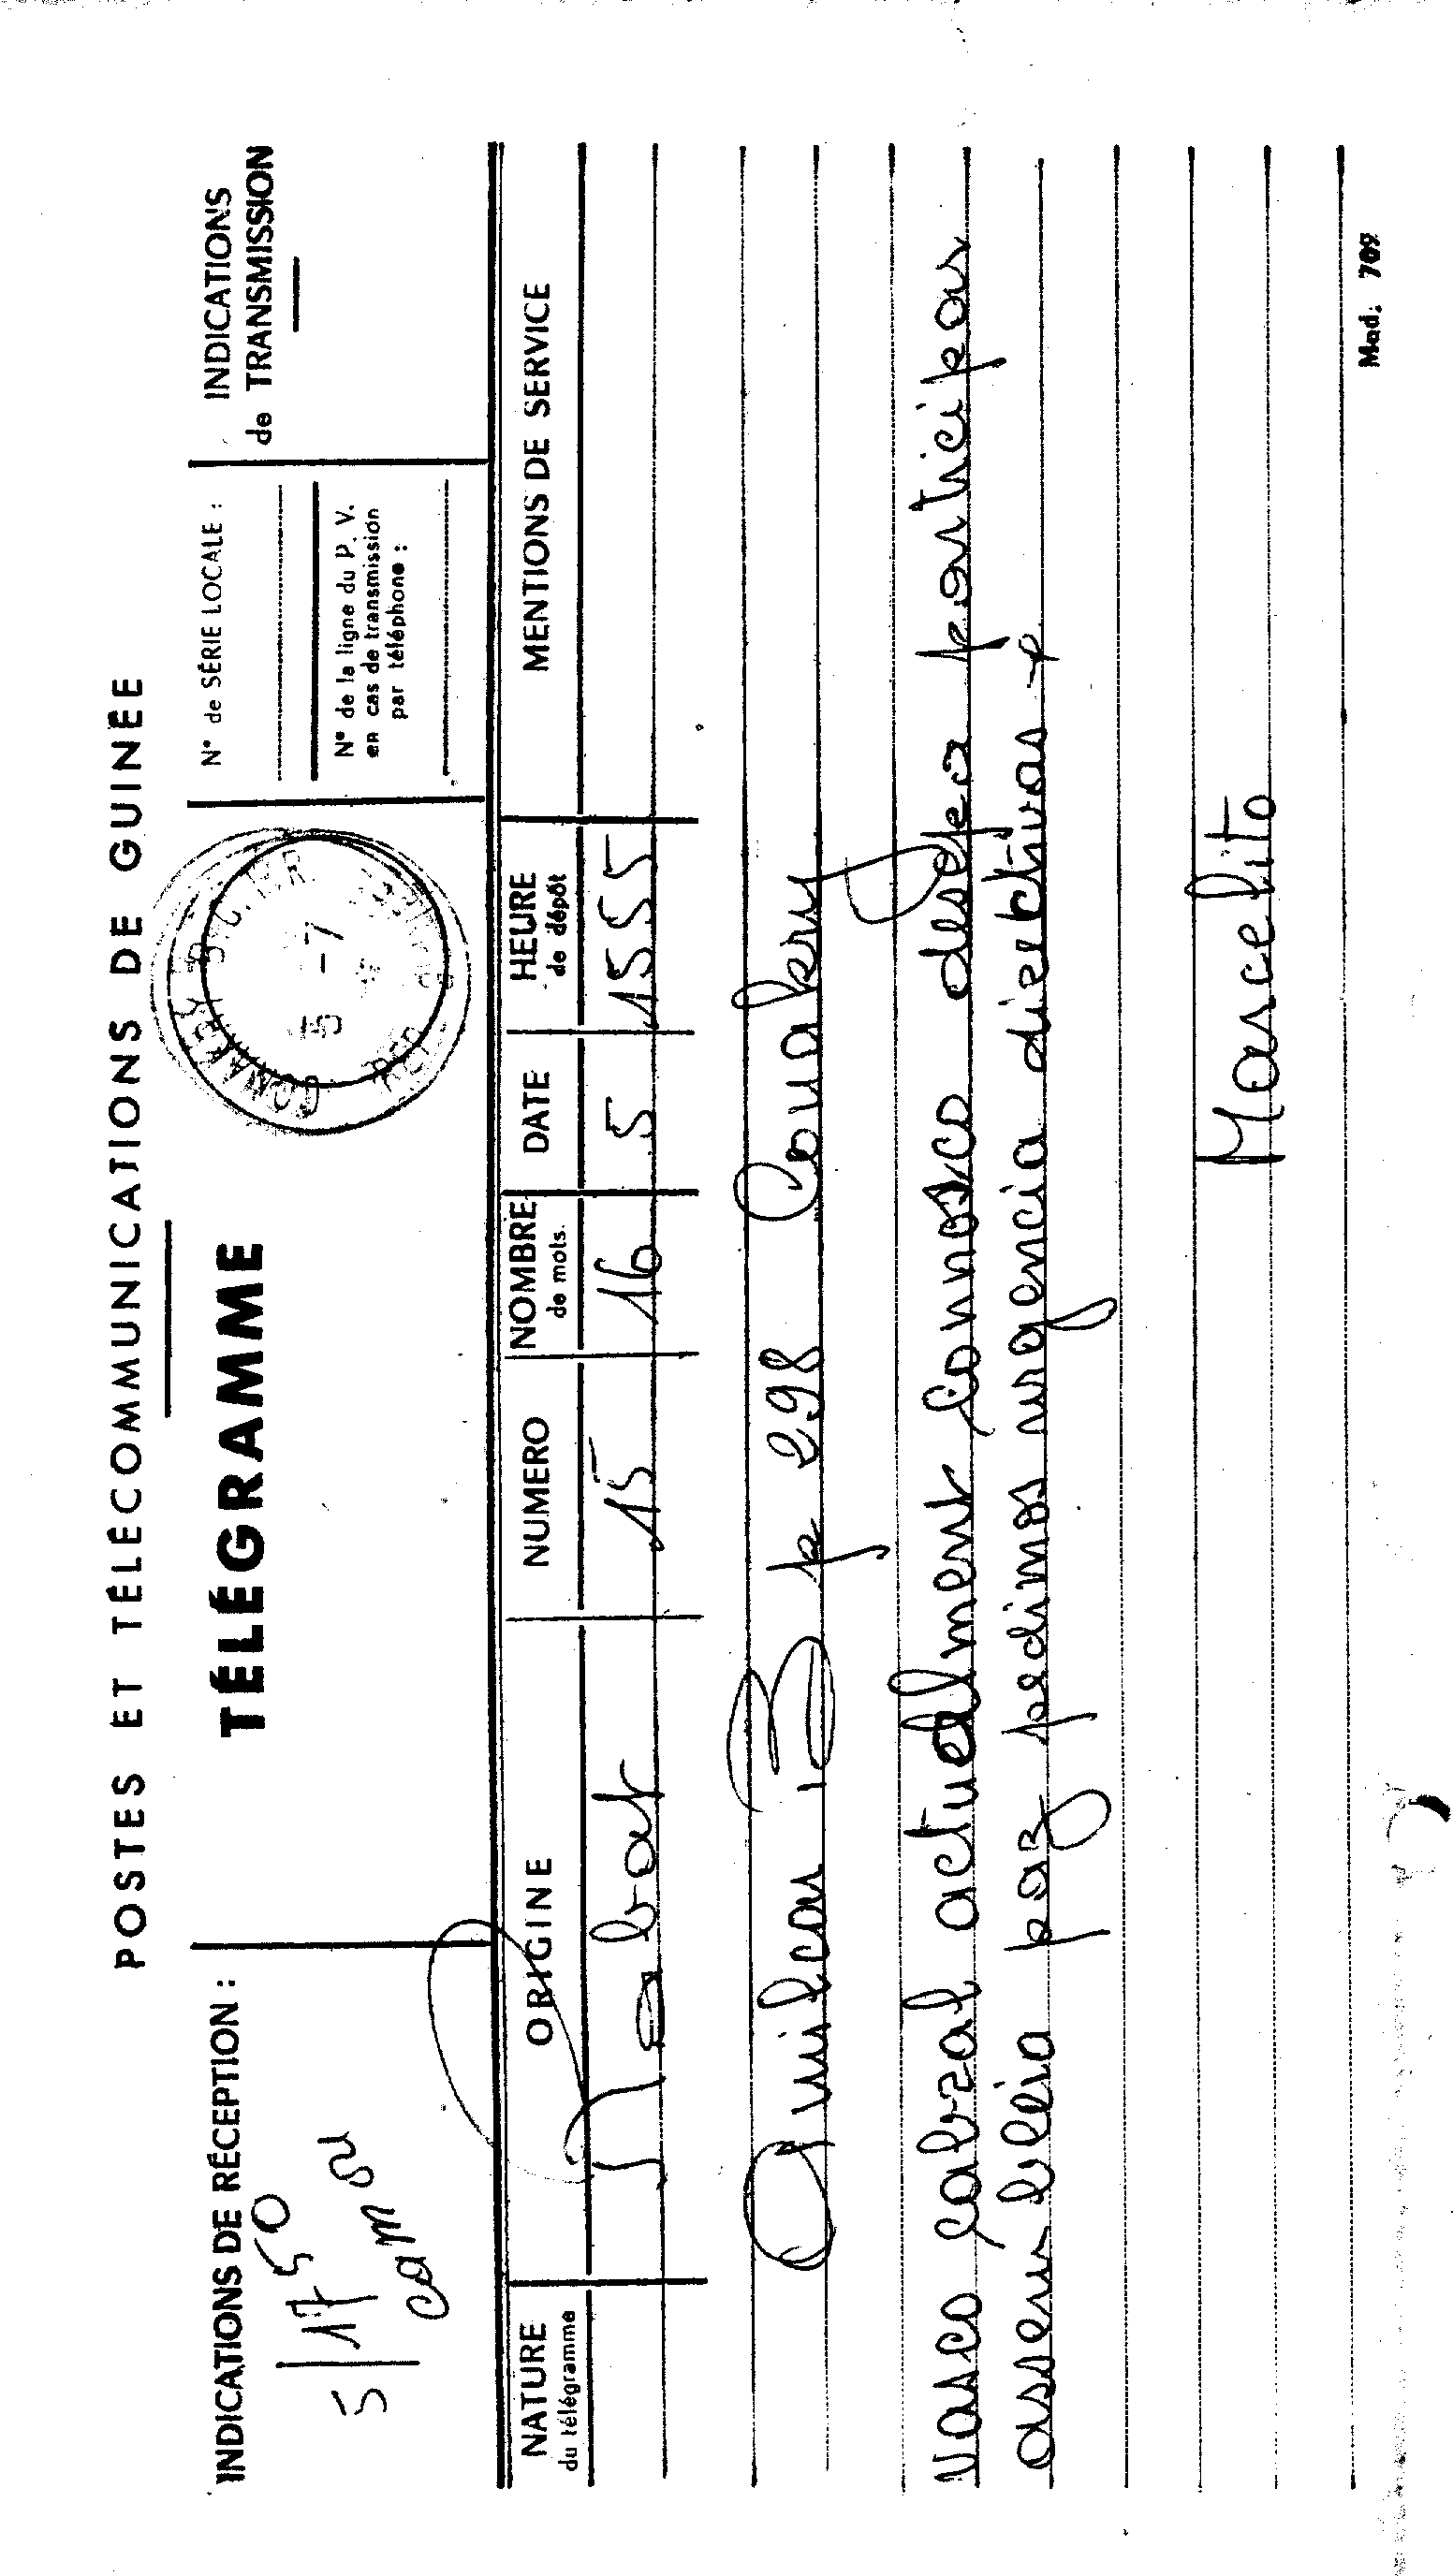 POSTES ET TÉLÉCOMMUNICATIONS DE GUINÉE
INDICATIONS DE RÉCEPTION :
5/1750
camou
TÉLÉGRAMME
CONAKRY
5 -7
N° de SÉRIE LOCALE :
N° de la ligne du P. V.
en cas de transmission
par téléphone :
INDICATIONS
de TRANSMISSION
NATURE
du télégramme
ORIGINE
NUMERO
NOMBRE
de mots.
DATE
HEURE
de dépôt
MENTIONS DE SERVICE
Rabat 15 16 5 1555
Amilcar B p 298 Conakry
Vasco cabral actuelment connosco deseja participar
assembleia paz pedimos urgencia directivas +
Marcelito
Mod. 709